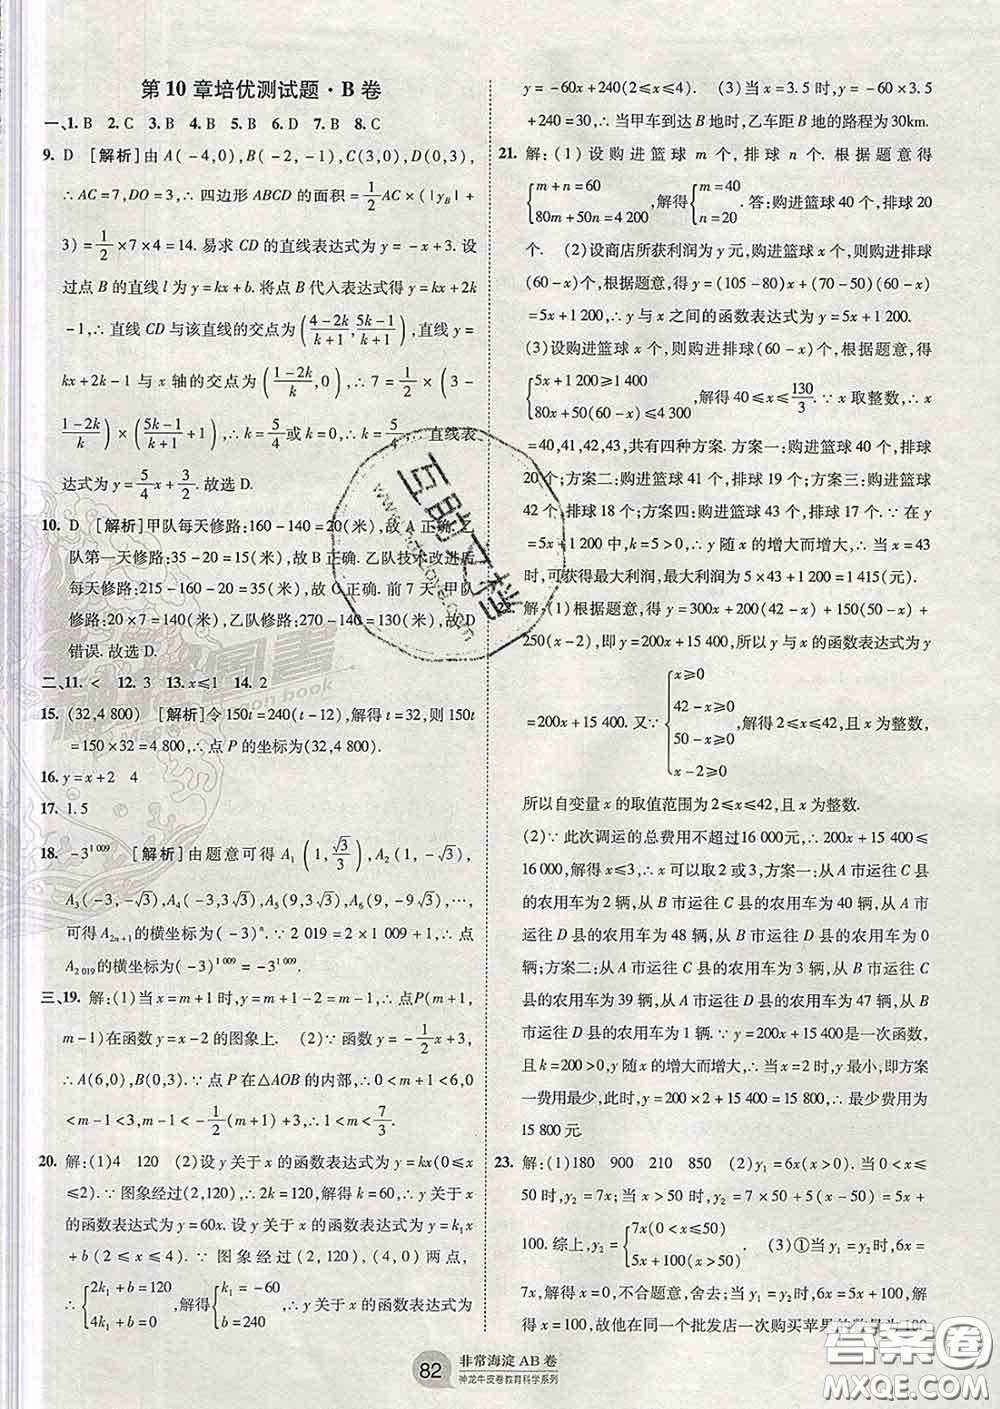 第 10 章培优测试题·B 卷
一、1. B 2. C 3. B 4. B 5. B 6. D 7. B 8. C
9. D [解析]由 A(-4,0),B(-2,-1),C(3,0),D(0,3),
∴AC=7,DO=3,∴四边形 ABCD 的面积=1/2 AC×(|y_B|+
3)=1/2×7×4=14. 易求 CD 的直线表达式为 y=-x+3. 设
过点 B 的直线 l 为 y=kx+b. 将点 B 代入表达式得 y=kx+2k
-1,∴直线 CD 与该直线的交点为((4-2k)/(k+1),(5k-1)/(k+1)),直线 y=
kx+2k-1 与 x 轴的交点为((1-2k)/k,0),∴7=1/2×(3-
(1-2k)/k)×((5k-1)/(k+1)+1),∴k=5/4或 k=0,∴k=5/4,∴直线表
达式为 y=5/4x+3/2. 故选 D.
10. D [解析]甲队每天修路:160-140=20(米),故 A 正确. 乙
队第一天修路:35-20=15(米),故 B 正确. 乙队技术改进后
每天修路:215-160-20=35(米),故 C 正确. 前 7 天,甲队
修路:20×7=140(米),乙队修路:270-140=130(米),故 D
错误. 故选 D.
二、11. < 12. 3 13. x≤1 14. 2
15. (32,4 800) [解析]令 150t=240(t-12),解得 t=32,则 150t
=150×32=4 800,∴点 P 的坐标为(32,4 800).
16. y=x+2 4
17. 1.5
18. -3^1 009 [解析]由题意可得 A1(1,√3/3),A2(1,-√3),
A3(-3,-√3),A4(-3,3√3),A5(9,3√3),A6(9,-9√3),…,
可得 A2n+1的横坐标为(-3)^n. ∵2 019=2×1 009+1,∴点
A2 019的横坐标为(-3)^1 009=-3^1 009.
三、19. 解:(1)当 x=m+1 时,y=m+1-2=m-1,∴点P(m+1,
m-1)在函数 y=x-2 的图象上. (2)∵函数 y=-1/2x+3,
∴A(6,0),B(0,3). ∵点 P 在△AOB 的内部,∴0<m+1<6,0
<m-1<3,m-1<-1/2(m+1)+3,∴1<m<7/3.
20. 解:(1)4 120 (2)设 y 关于 x 的函数表达式为 y=kx(0≤x
≤2). ∵图象经过(2,120),∴2k=120,解得 k=60,∴y 关于 x
的函数表达式为 y=60x. 设 y 关于 x 的函数表达式为 y=k1x
+b(2≤x≤4). ∵图象经过(2,120),(4,0)两点,
∴{2k1+b=120 4k1+b=0,解得{k1=-60 b=240,∴y 关于 x 的函数表达式为
y=-60x+240(2≤x≤4). (3)当 x=3.5 时,y=-60×3.5
+240=30,∴当甲车到达 B 地时,乙车距 B 地的路程为30km.
21. 解:(1)设购进篮球 m 个,排球 n 个. 根据题意得
{m+n=60 80m+50n=4 200,解得{m=40 n=20. 答:购进篮球 40 个,排球 20
个. (2)设商店所获利润为 y 元,购进篮球 x 个,则购进排球
(60-x)个,根据题意,得 y=(105-80)x+(70-50)(60-x)
=5x+1 200,∴y 与 x 之间的函数表达式为 y=5x+1 200.
(3)设购进篮球 x 个,则购进排球(60-x)个,根据题意,得
{5x+1 200≥1 400 80x+50(60-x)≤4 300,解得 40≤x≤130/3. ∵x 取整数,∴x
=40,41,42,43,共有四种方案. 方案一:购进篮球 40 个,排球
20 个;方案二:购进篮球 41 个,排球 19 个;方案三:购进篮球
42 个,排球 18 个;方案四:购进篮球 43 个,排球 17 个. ∵在 y
=5x+1 200 中,k=5>0,∴y 随 x 的增大而增大,∴当 x=43
时,可获得最大利润,最大利润为 5×43+1 200=1 415(元).
解:(1)根据题意,得 y=300x+200(42-x)+150(50-x)+
250(x-2),即 y=200x+15 400,所以 y 与 x 的函数表达式为 y
=200x+15 400. 又∵{x≥0 42-x≥0 50-x≥0 x-2≥0,解得 2≤x≤42,且 x 为整数,
所以自变量 x 的取值范围为 2≤x≤42,且 x 为整数.
(2)∵此次调运的总费用不超过16 000元,∴200x+15 400≤
16 000,解得 x≤3,∴x 可以取 2 或 3. 方案一:从 A 市运往 C
县的农用车为 2 辆,从 B 市运往 C 县的农用车为 40 辆,从 A 市
运往 D 县的农用车为 48 辆,从 B 市运往 D 县的农用车为 0
辆;方案二:从 A 市运往 C 县的农用车为 3 辆,从 B 市运往 C
县的农用车为 39 辆,从 A 市运往 D 县的农用车为 47 辆,从 B
市运往 D 县的农用车为 1 辆. ∵y=200x+15 400是一次函数,
且 k=200>0,y 随 x 的增大而增大,∴当 x=2 时,y 最小,即方案
一费用最小,此时,y=200×2+15 400=15 800,∴最少费用为
15 800 元.
23. 解:(1)180 900 210 850 (2)y1=6x(x>0). 当 0<x≤
50 时,y2=7x;当 x>50 时,y2=7×50+5(x-50)=5x+
100. 综上,y2={7x(0<x≤50) 5x+100(x>50). (3)①当 y1=y2 时,6x=
7x,解得 x=0,不合题意,舍去;当 y1=y2 时,6x=5x+100,解
得 x=100,故他在同一个批发店一次购买苹果的数量为 100
82 非常海淀 AB 卷
神龙牛皮卷教育科学系列
答案圈
MXQE.COM